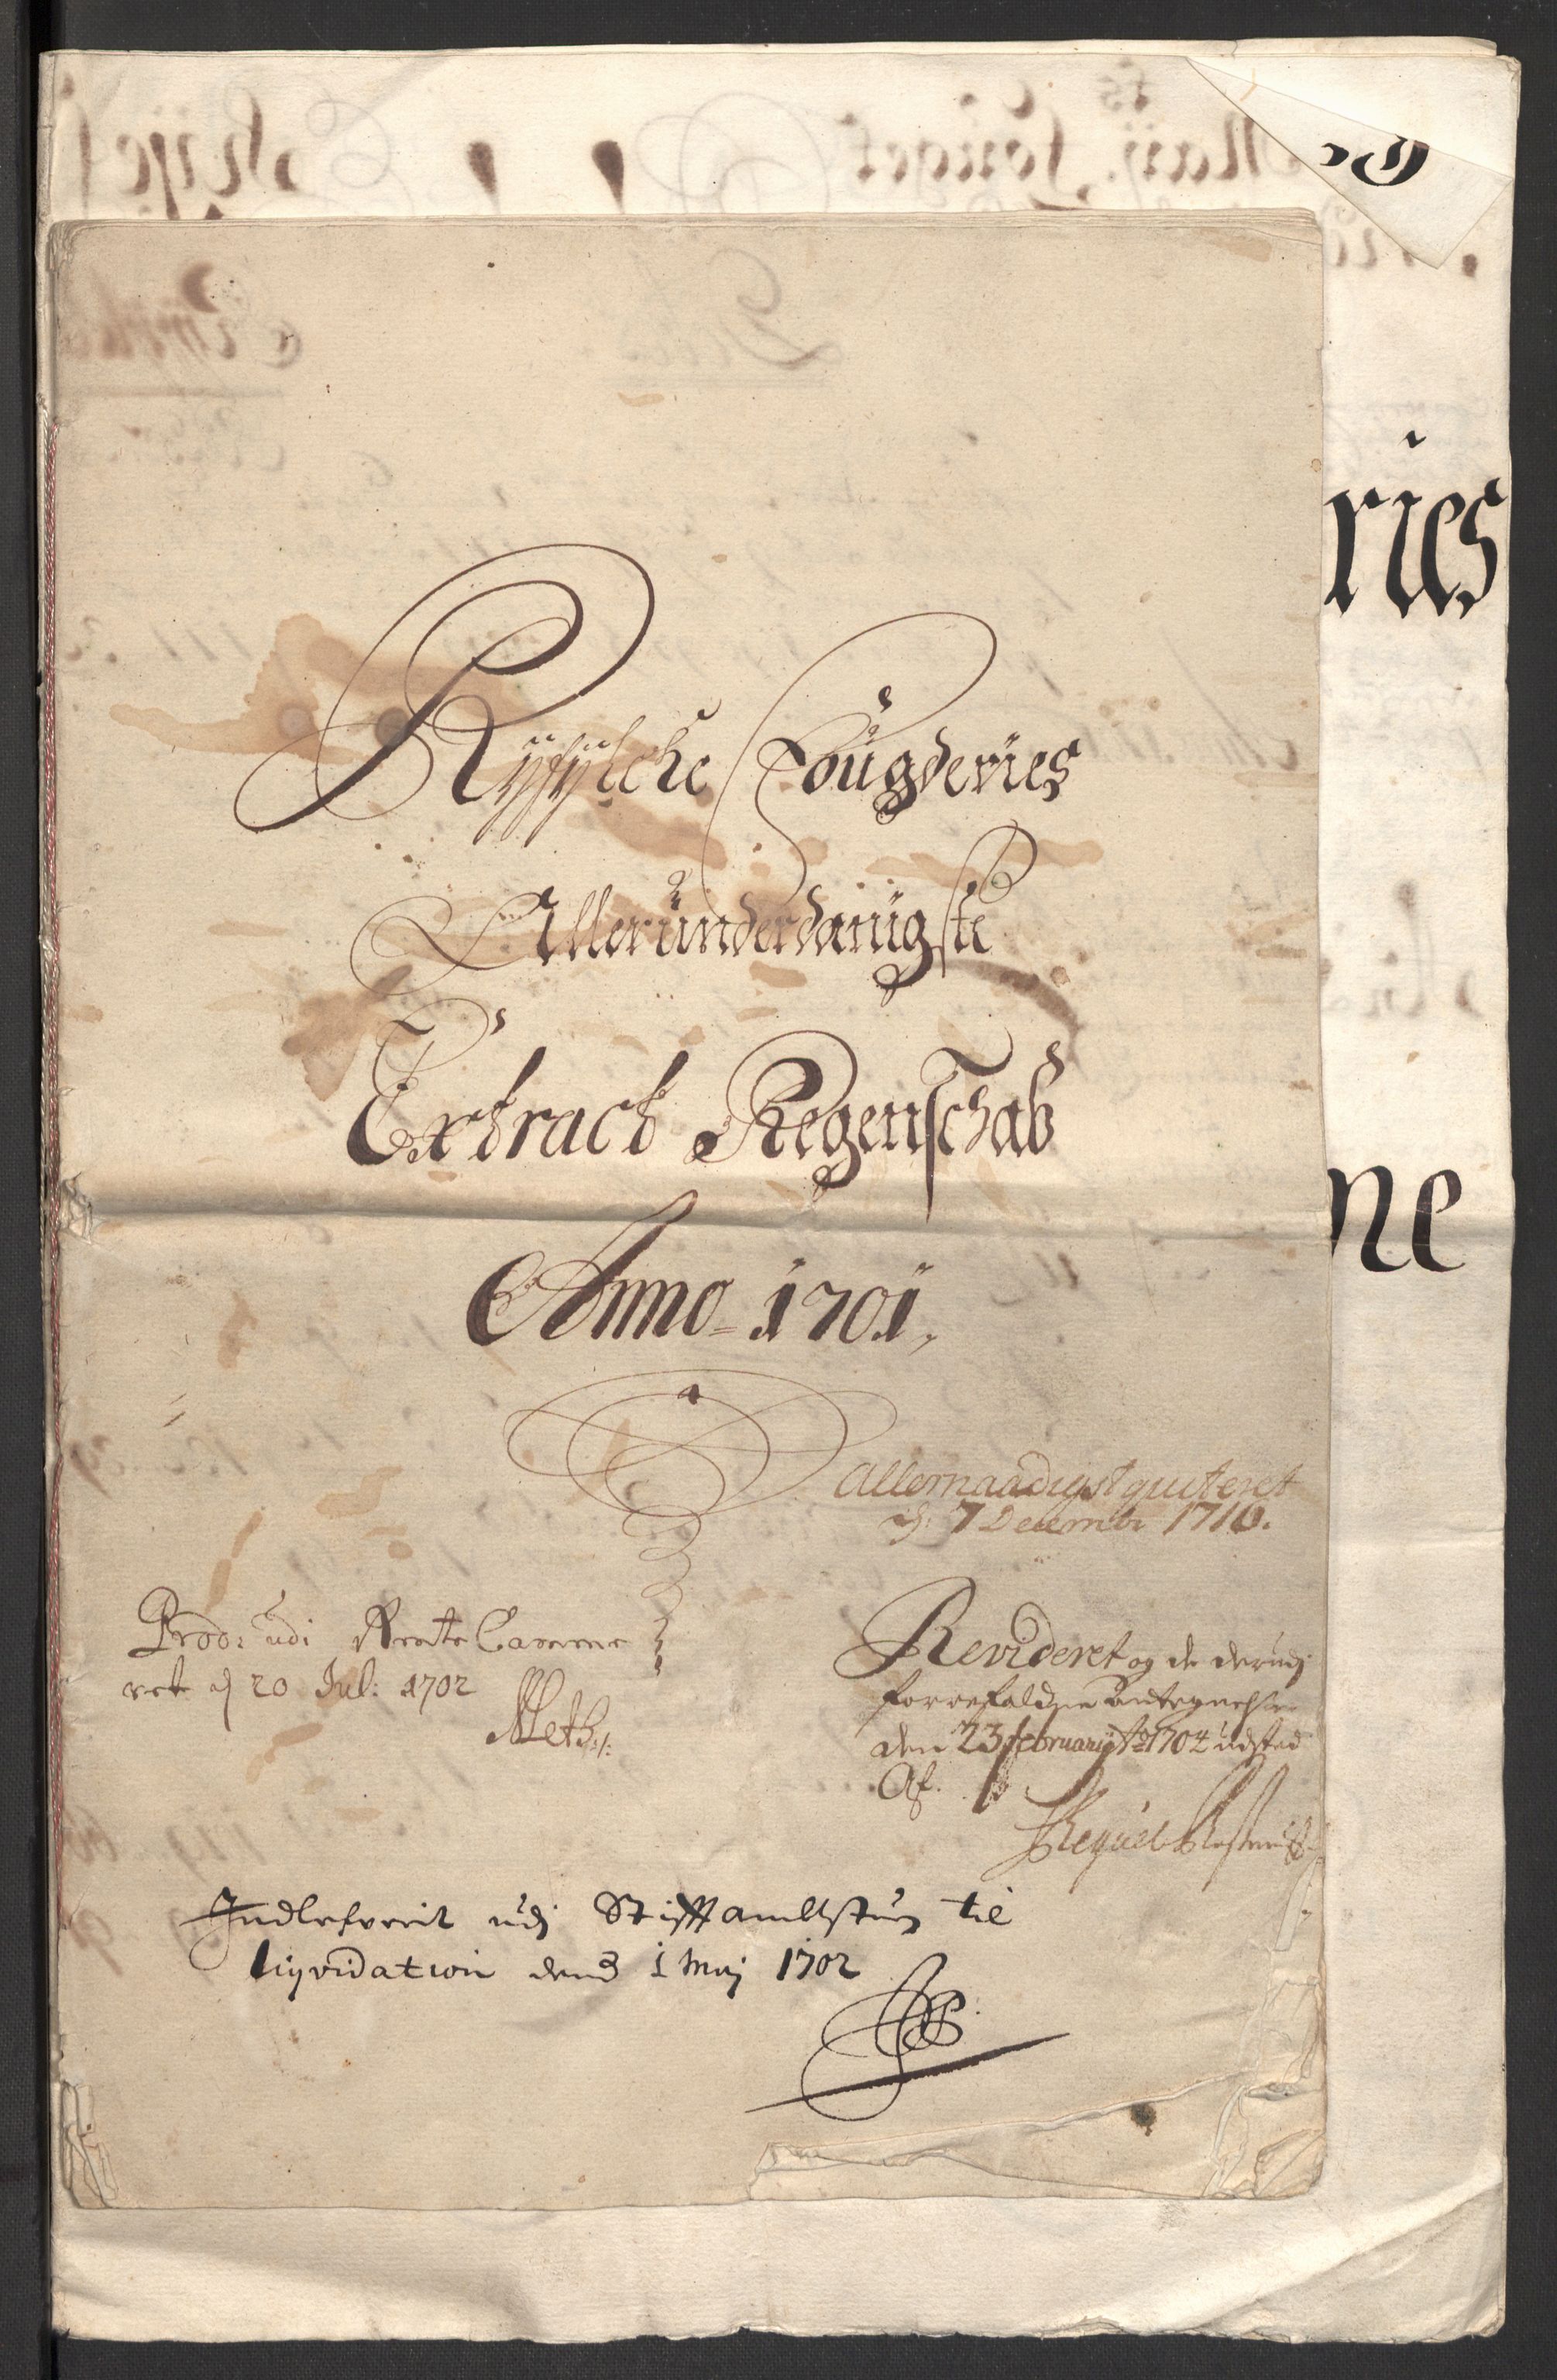 Ryfylcke Fougderies
Allerunderdanigste
Extract Regenschab
Anno 1701,
Allernaadigst quiteret
d: 7 Decembr 1710.
Prod: udi Rente Camme
ret d 20 Jul: 1702
Revideret og de derudj
forrefaldne antegnelser
den 23 februarij Ao 1704 udsted
Af.
Indlefverit udj Stifftambtstuen til
liqvidation dend 1 Maj 1702
ries
ne